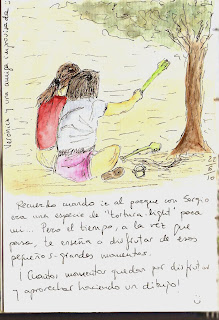 Verónica y una amiga improvisada
Recuerdo cuando ir al parque con Sergio
era una especie de "tortura light" para
mí... Pero el tiempo, a la vez que
pasa, te enseña a disfrutar de esos
pequeños-grandes momentos.
¡Cuántos momentos quedan por disfrutar
y aprovechar haciendo un dibujo!